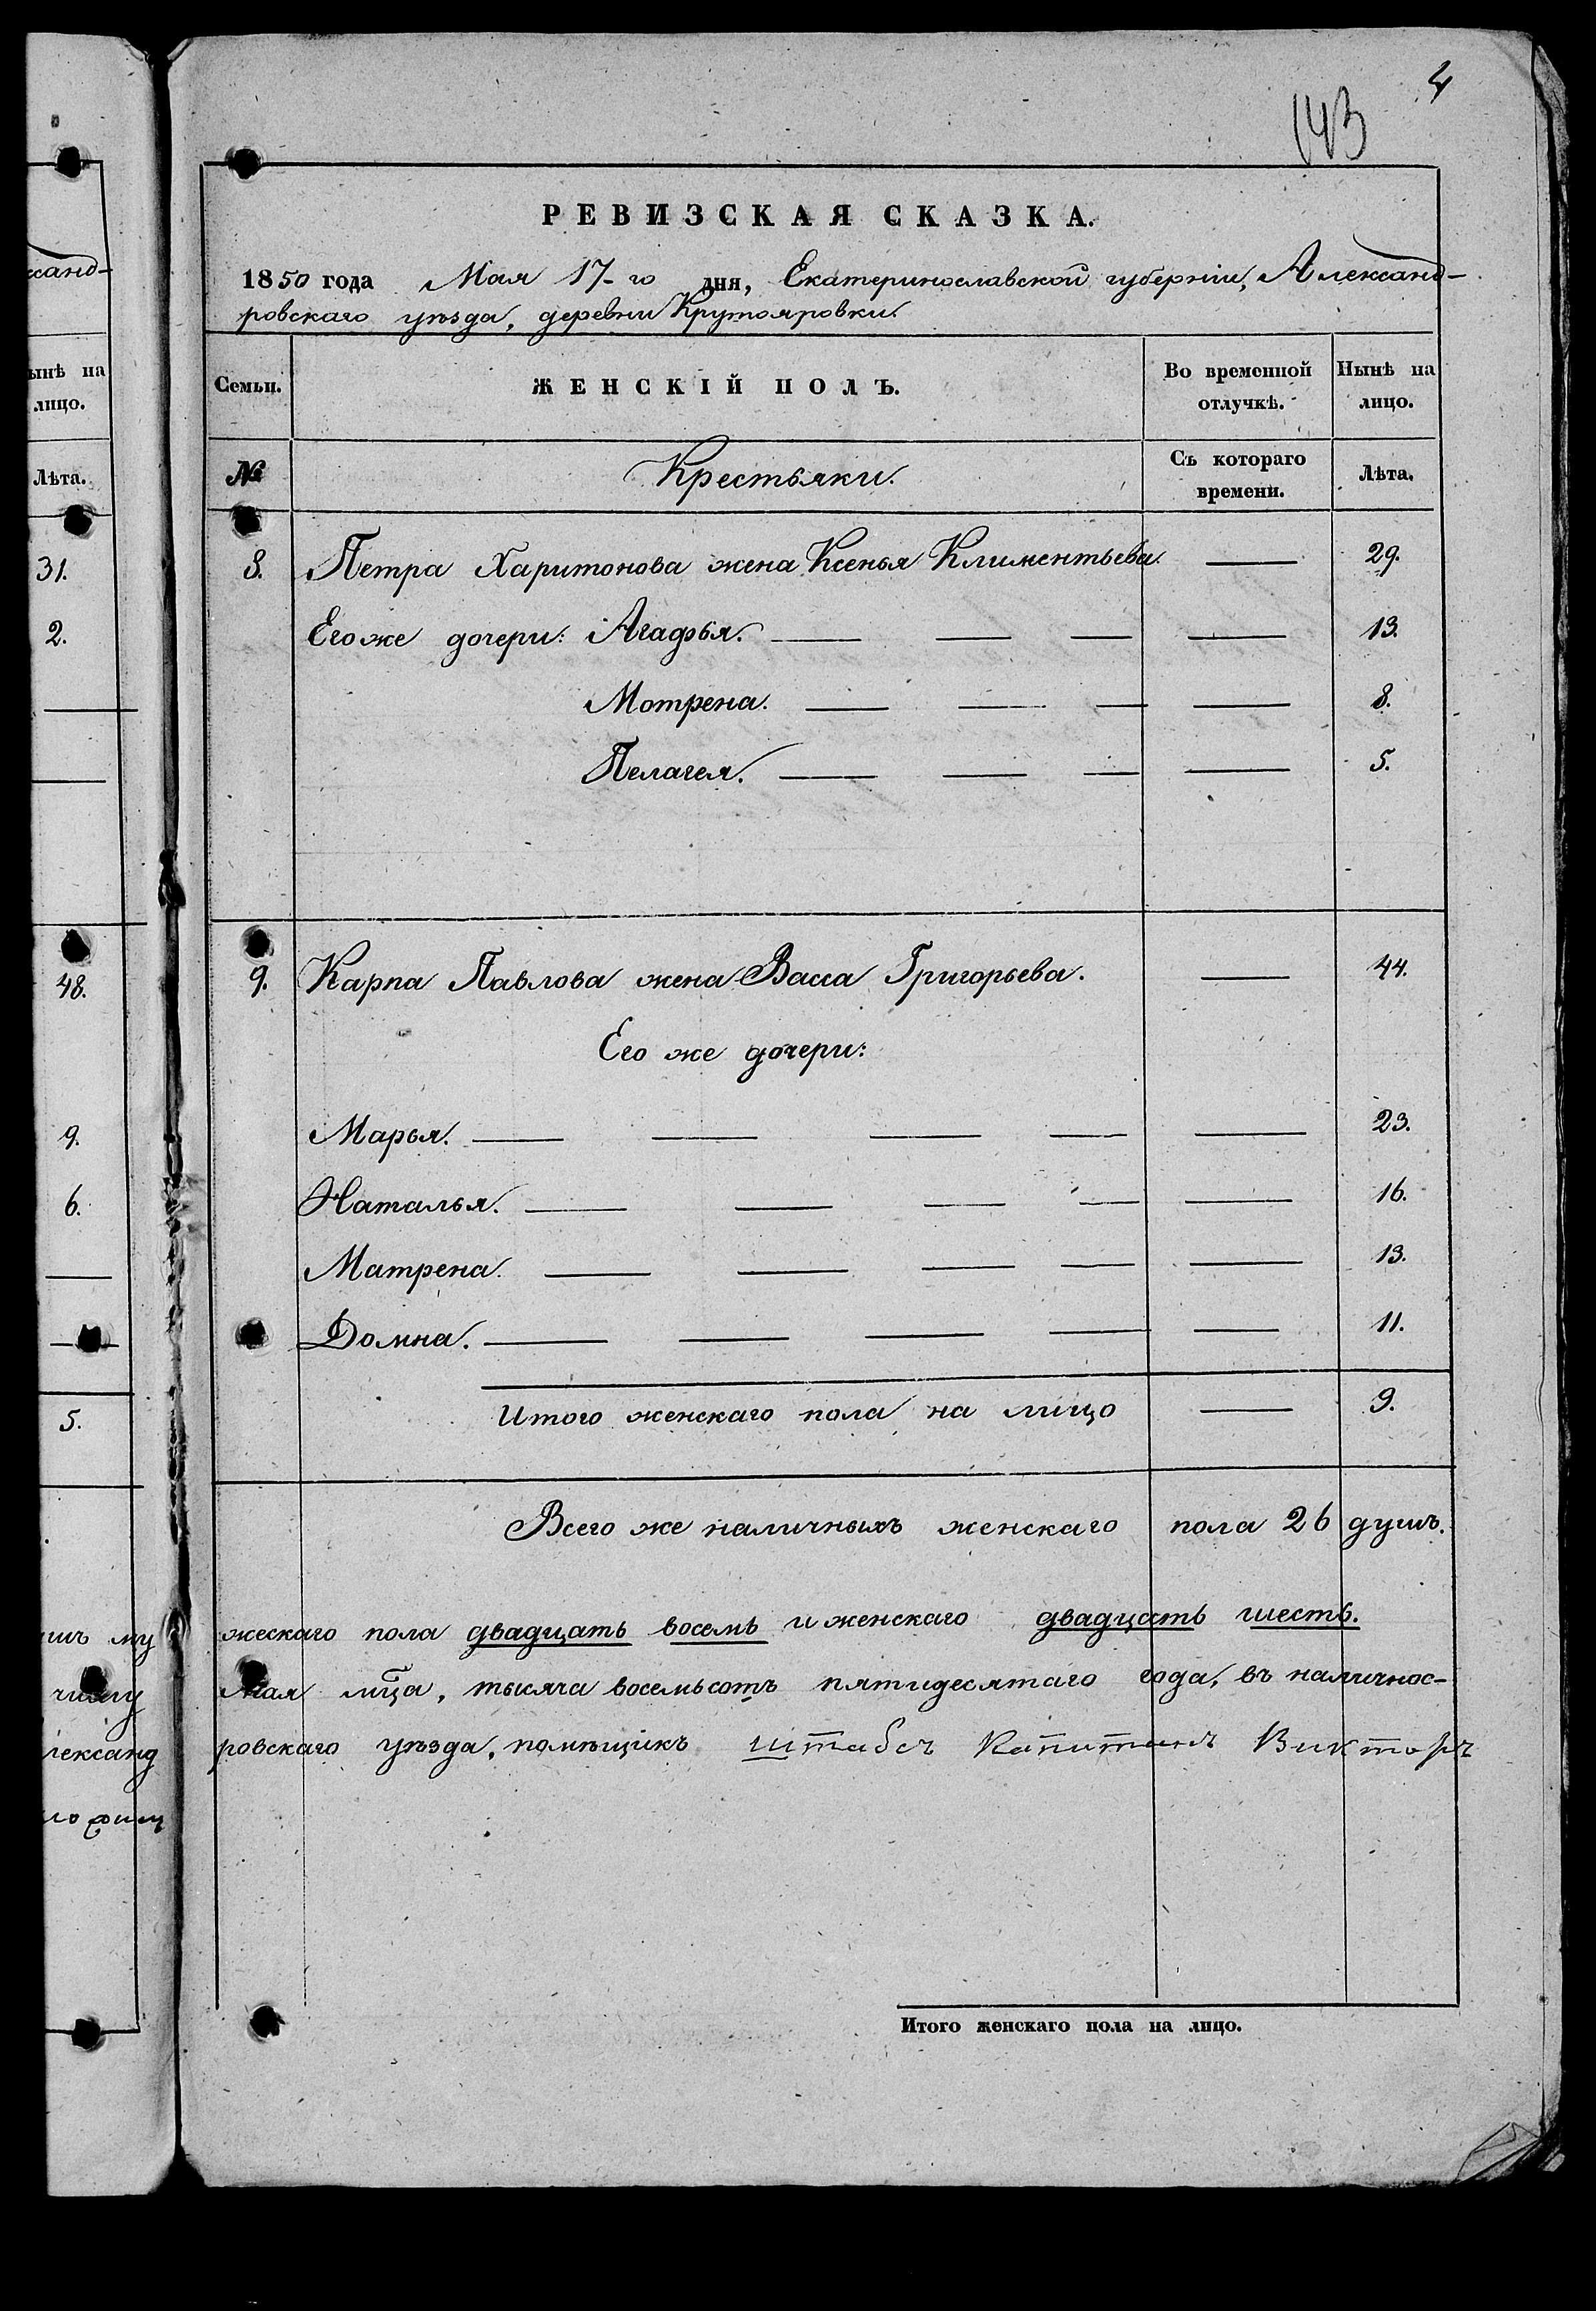 4
143
РЕВИЗСКАЯ СКАЗКА.
1850 года Мая 17-го дня, Екатеринославской губерніи, Александ-
ровскаго уѣзда, деревни Крутояровки.
Семьи. ЖЕНСКІЙ ПОЛЪ. Во временной отлучкѣ. Нынѣ на лицо.
№ Крестьяки. Съ котораго времени. Лѣта.
8. Петра Харитонова жена Ксенья Климентьева. — 29.
Его же дочери: Агафья. — — — — 13.
Мотрена. — — — — 8.
Пелагея. — — — — 5.
9. Карпа Павлова жена Васса Григорьева. — 44.
Его же дочери:
Марья. — — — — — 23.
Наталья. — — — — — 16.
Матрена. — — — — — 13.
Домна. — — — — — 11.
Итого женскаго пола на лицо — 9.
Всего же наличныхъ женскаго пола 26 душъ.
жескаго пола двадцать восемь и женскаго двадцать шесть.
Мая мца, тысяча восемьсотъ пятидесятаго года, въ наличнос-
ровскаго уѣзда, помѣщикъ штабсъ Капитанъ Викторъ
Итого женскаго пола на лицо.
ксанд-
ынѣ на
лицо.
Лѣта.
31.
2.
48.
9.
6.
5.
шъ му
лександ